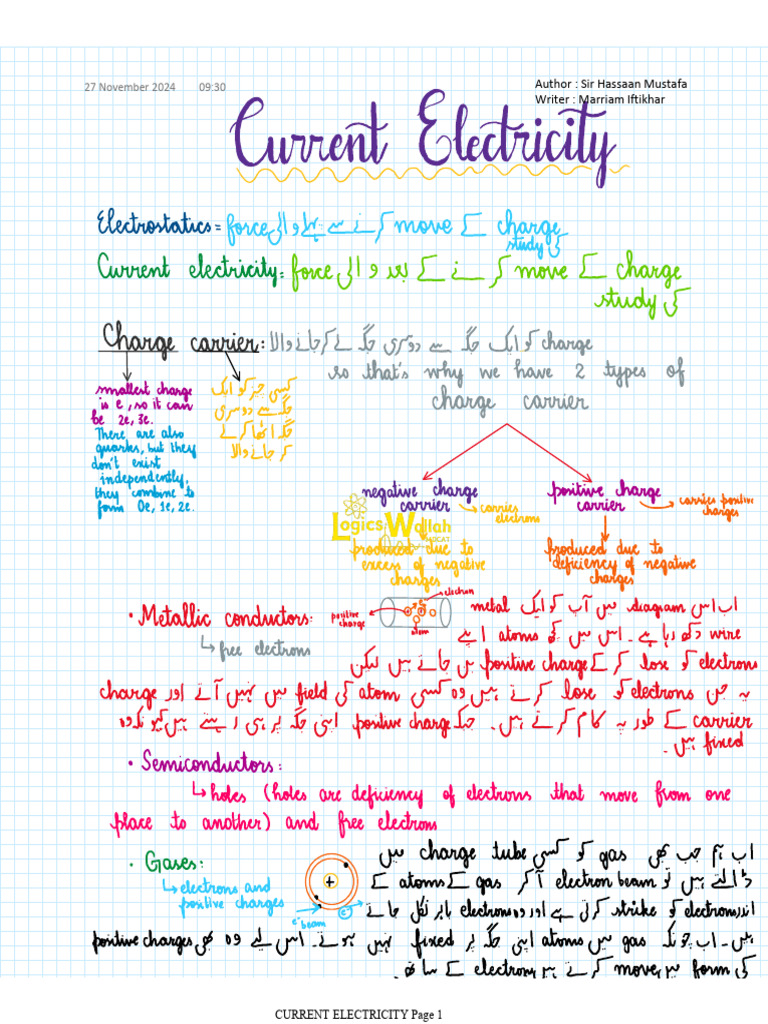 27 November 2024 09:30
Author : Sir Hassaan Mustafa
Writer : Marriam Iftikhar
Current Electricity
Electrostatics = charge کے move کرنے سے پہلے والی force
کی study
Current electricity: charge کے move کرنے کے بعد والی force
کی study
Charge carrier: charge کو ایک جگہ سے دوسری جگہ لے کر جانے والا
so that's why we have 2 types of
charge carrier
smallest charge
is e, so it can
be 2e, 3e.
There are also
quarks, but they
don't exist
independently,
they combine to
form 0e, 1e, 2e.
کسی چیز کو ایک
جگہ سے دوسری
جگہ اٹھا کر لے
کر جانے والا
negative charge
carrier
carries
electrons
produced due to
excess of negative
charges
positive charge
carrier
carries positive
charges
produced due to
deficiency of negative
charges
Logics Wallah
MDCAT
• Metallic conductors:
free electrons
positive
charge
electron
atom
اب اس diagram میں آپ کو ایک metal
wire دکھ رہا ہے۔ اس میں کچھ atoms اپنے
electrons کو lose کر کے positive charge بن جاتے ہیں لیکن
یہ جن electrons کو lose کرتے ہیں وہ کسی atom کی field میں نہیں آتے اور charge
carrier کے طور پہ کام کرتے ہیں۔ جبکہ positive charge اپنی جگہ پر ہی رہتے ہیں کیونکہ وہ
fixed ہیں۔
• Semiconductors:
holes (holes are deficiency of electrons that move from one
place to another) and free electrons
• Gases:
electrons and
positive charges
+
e⁻ beam
e⁻
اب ہم جب بھی gas کو کسی charge tube میں
ڈالتے ہیں تو electron beam آ کر gas کے atoms کے
اندر electrons کو strike کرتی ہے اور وہ electrons باہر نکل جاتے
ہیں۔ اب چونکہ gas میں atoms اپنی جگہ پر fixed نہیں ہوتے۔ اس لیے وہ بھی positive charges
کی form میں move کرتے ہیں electrons کے ساتھ۔
CURRENT ELECTRICITY Page 1